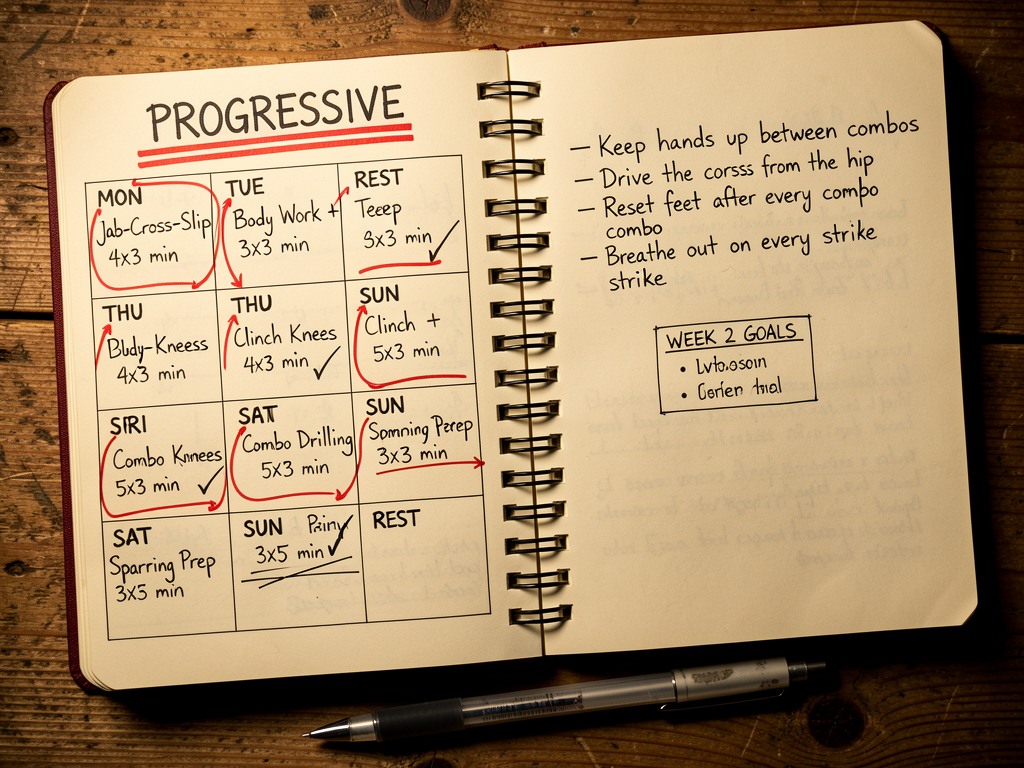 PROGRESSIVE
MON
Jab-Cross-Slip
4x3 min
TUE
Body Work +
3x3 min
REST
Teep
3x3 min
THU
Bludy-Kneess
4x3 min
THU
Clinch Knees
4x3 min
SUN
Clinch +
5x3 min
SIRI
Combo Knnees
5x3 min
SAT
Combo Drilling
5x3 min
SUN
Somning Perep
3x3 min
SAT
Sparring Prep
3x5 min
SUN
3x5 min
REST
– Keep hands up between combos
– Drive the corsss from the hip
– Reset feet after every combo
combo
– Breathe out on every strike
strike
WEEK 2 GOALS